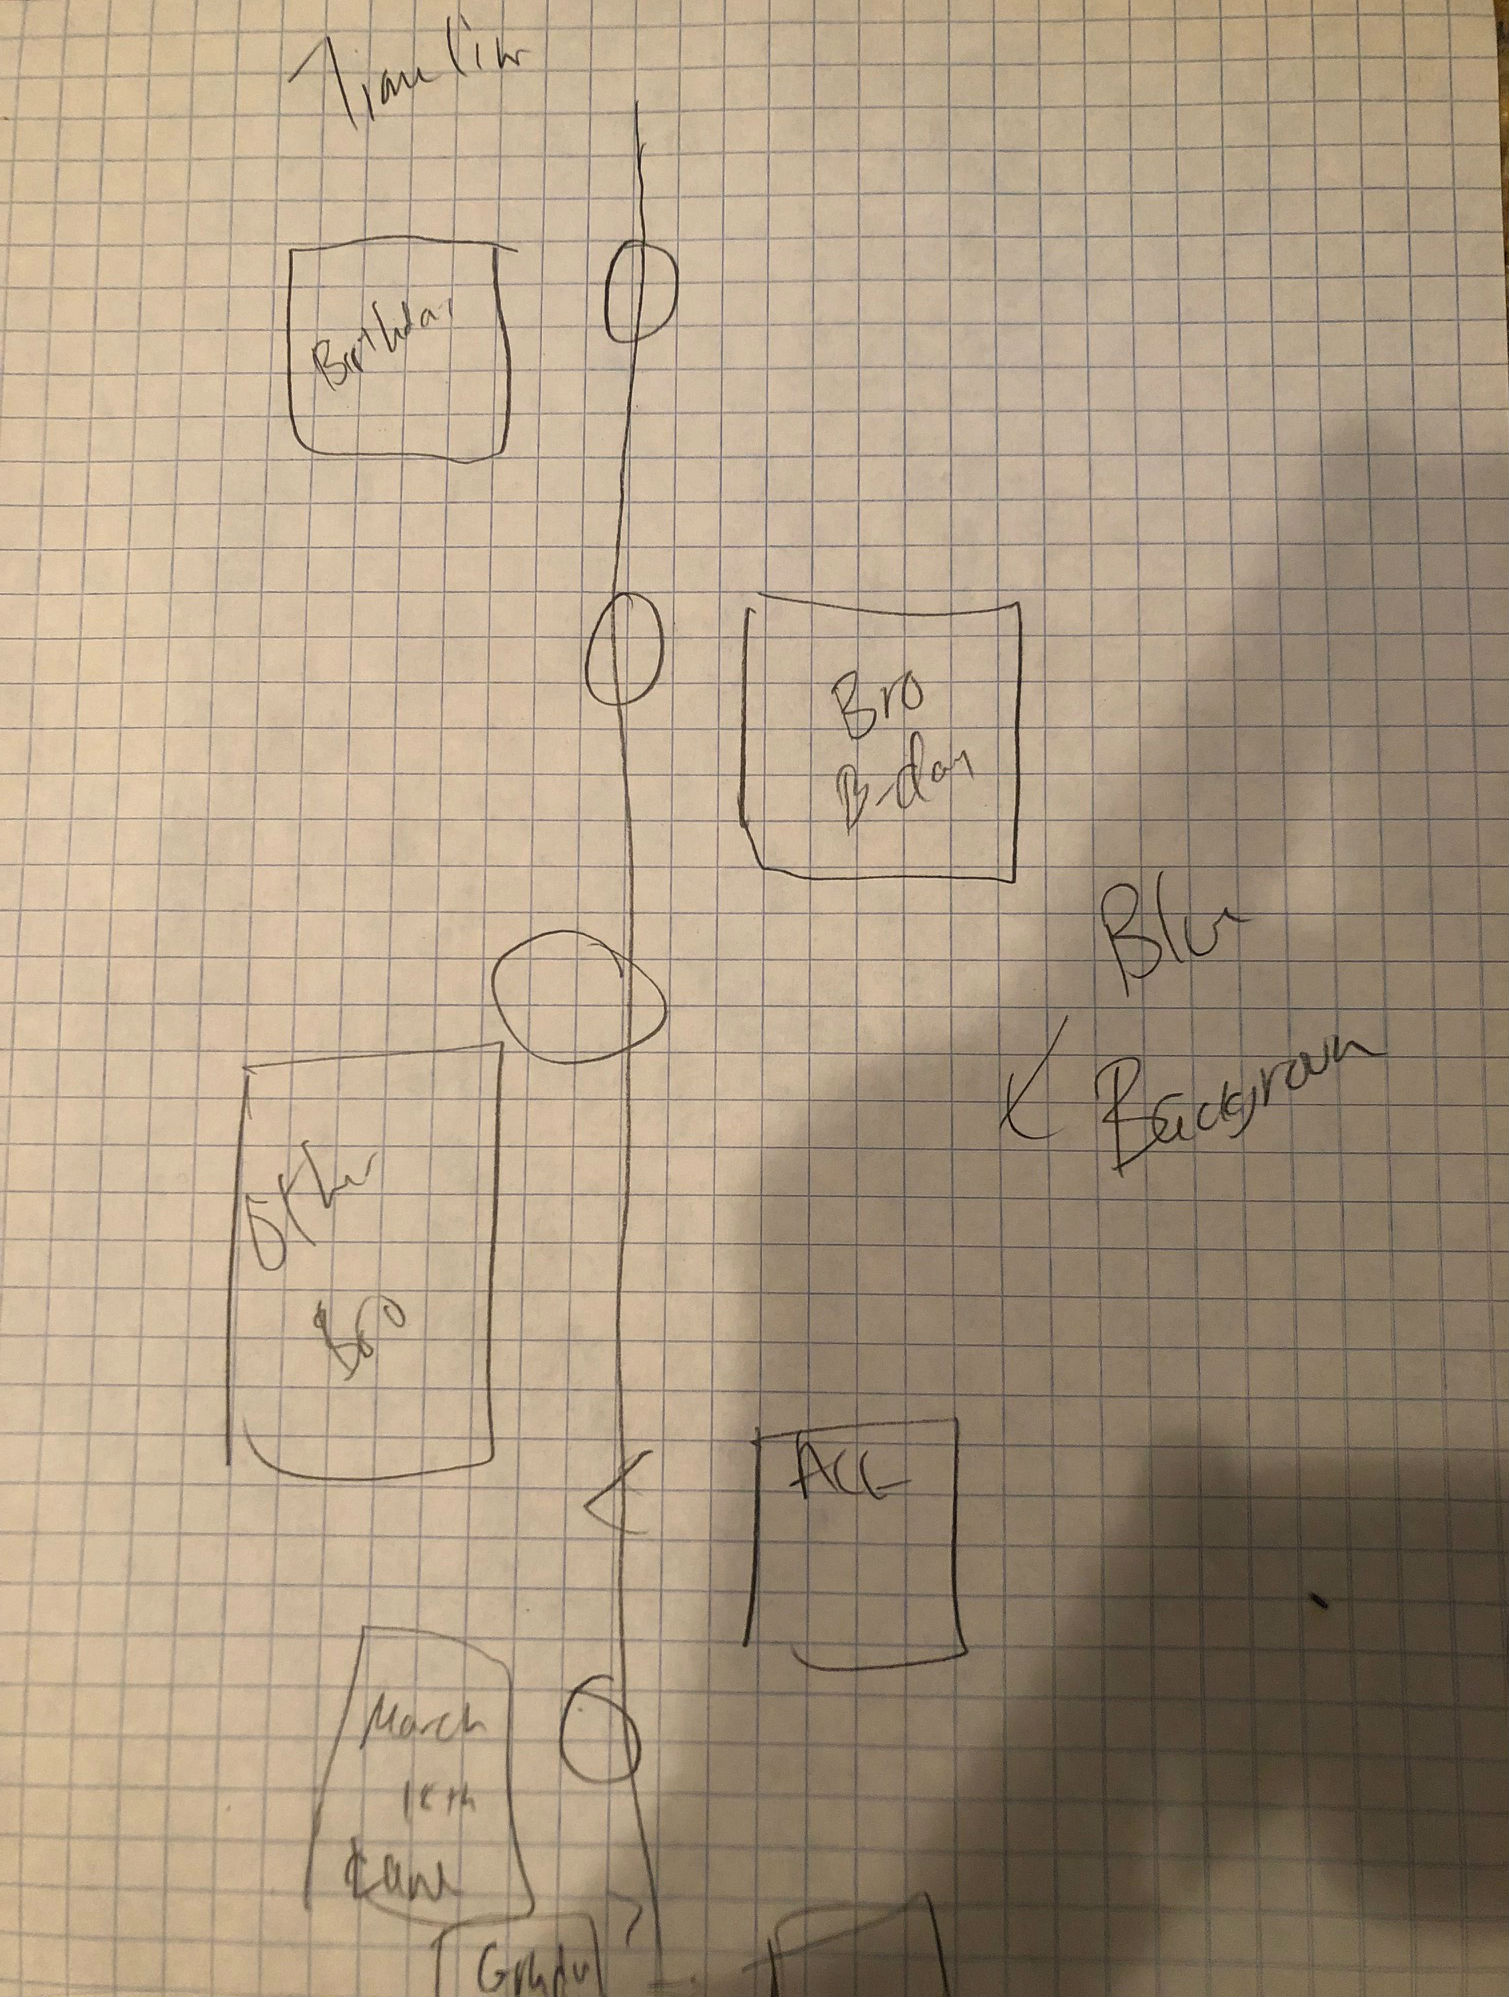 Time line
Birthday
Bro
B-day
Blur
Backgroun
Other
Bro
Acc
March
18th